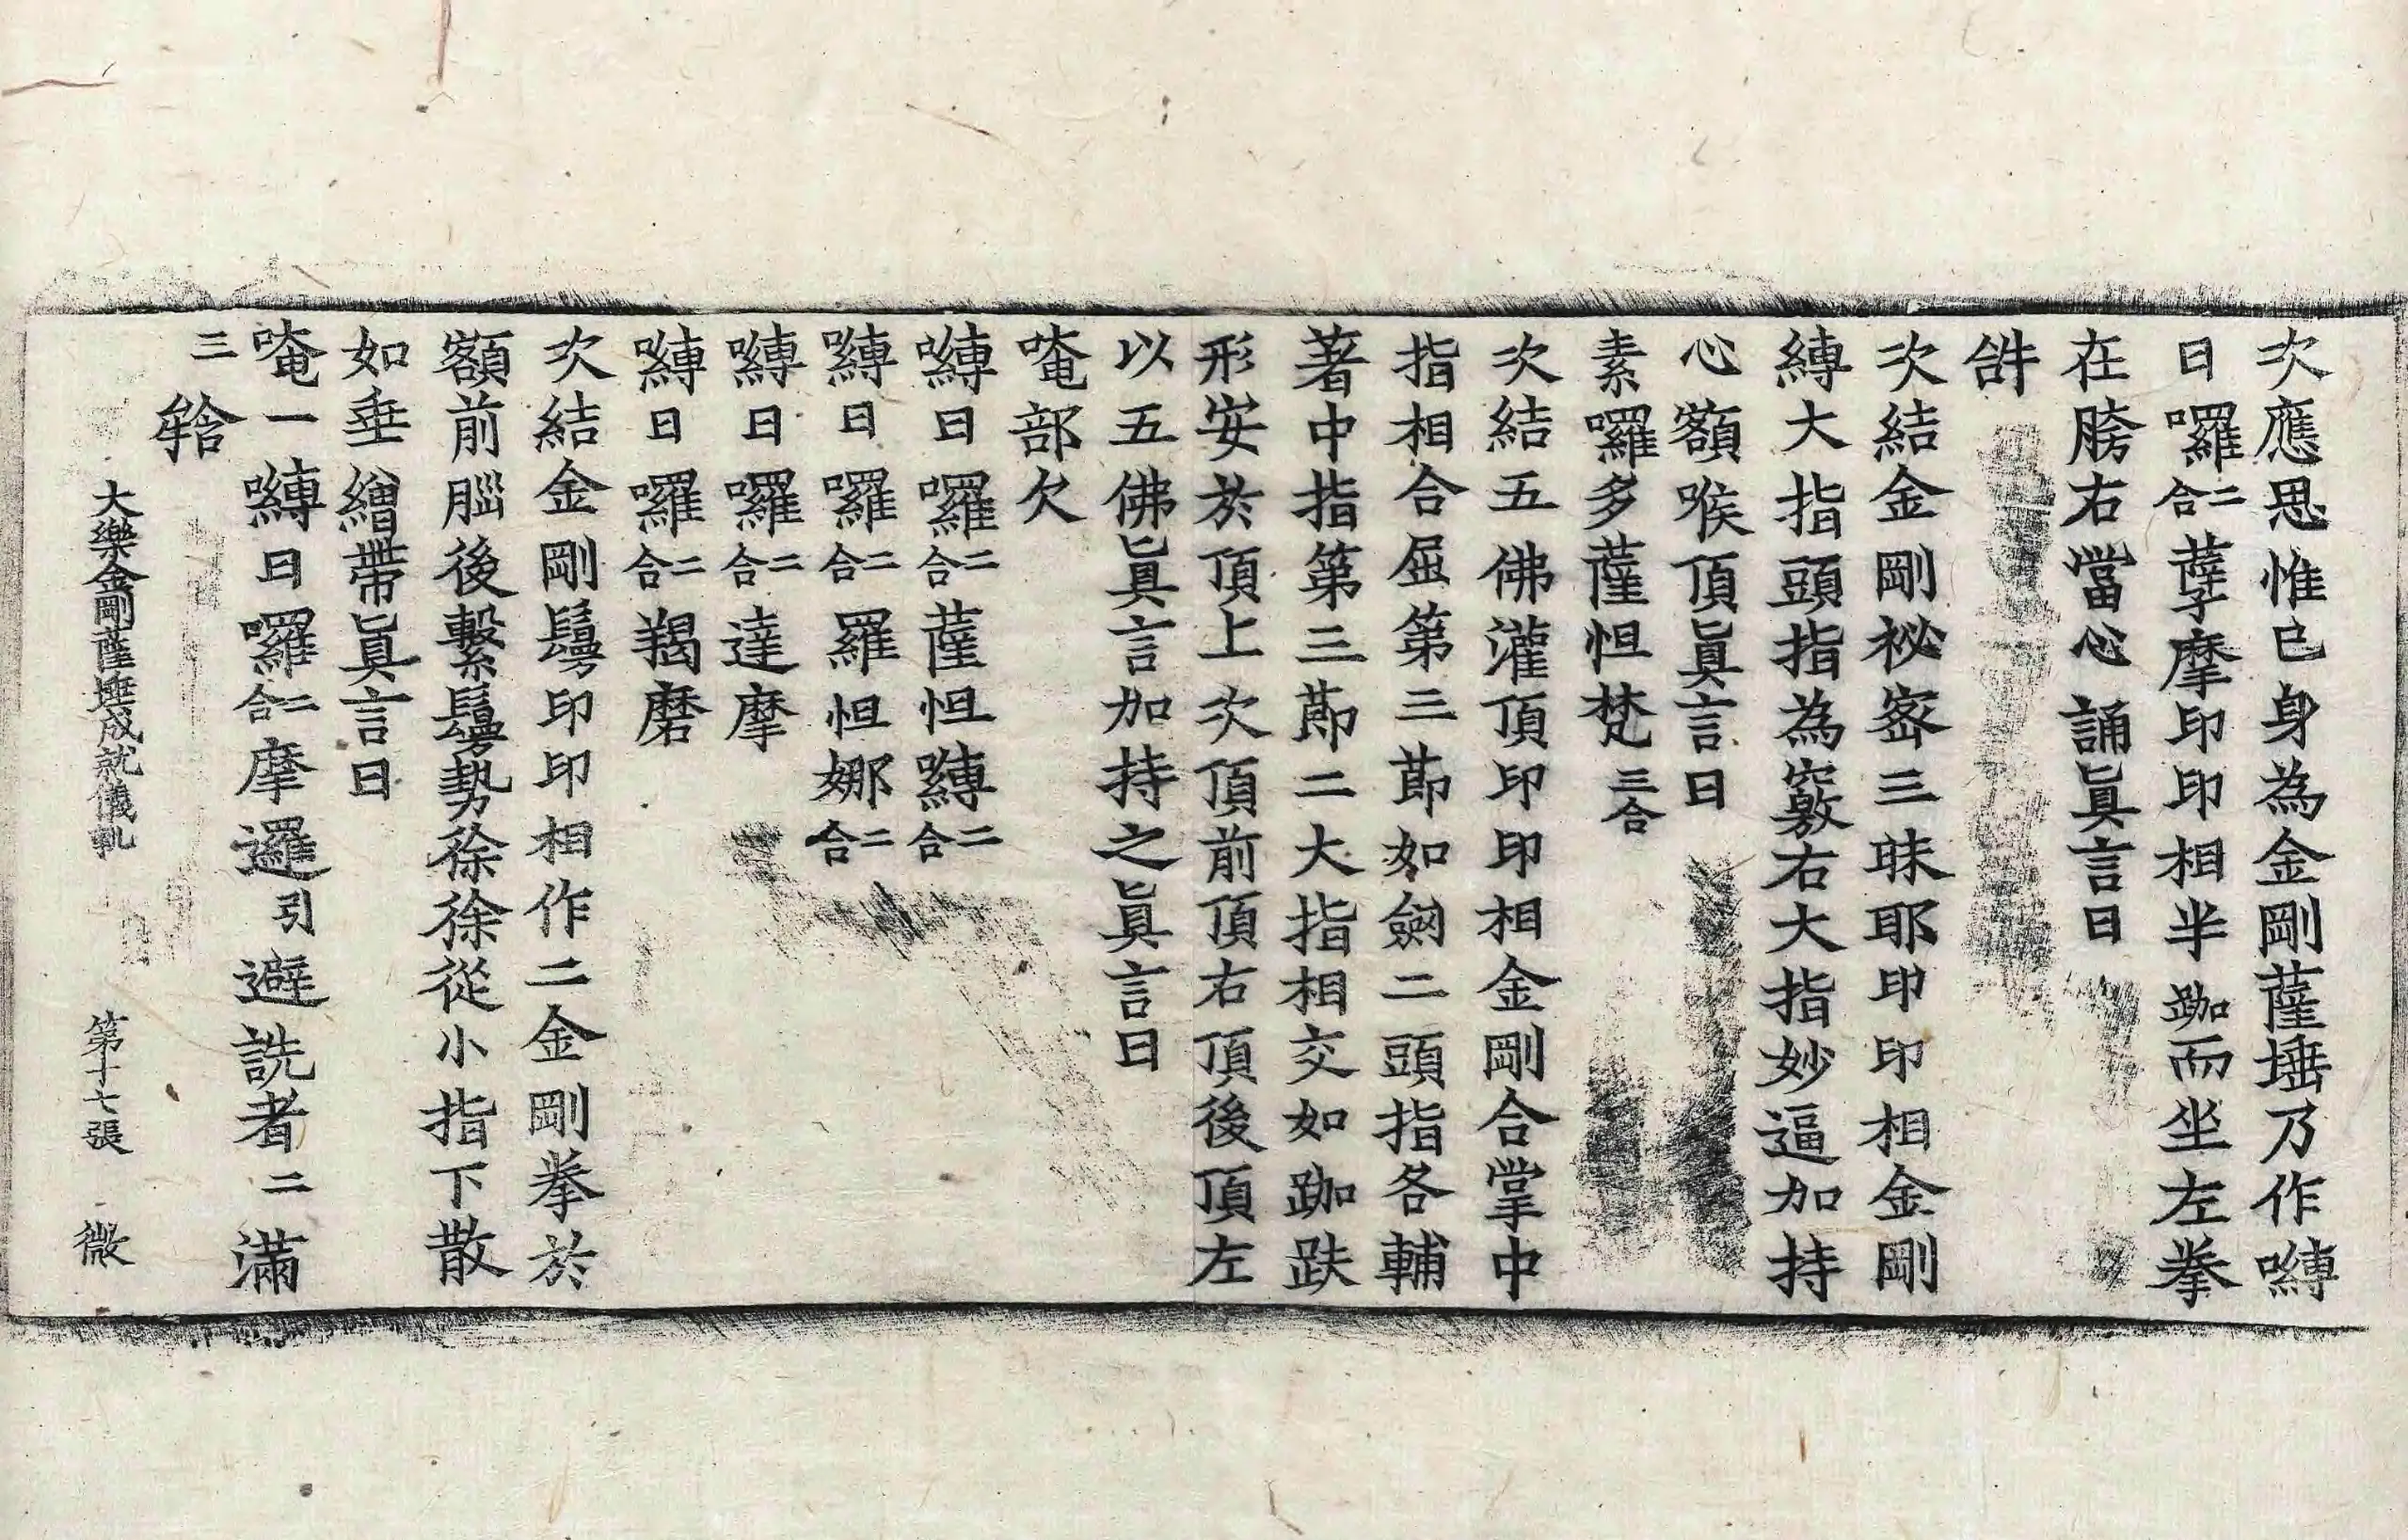 次應思惟已身為金剛薩埵乃作㘕
日囉二合薩摩印印相半跏而坐左拳
在胯右當心誦眞言曰
䤈
次結金剛祕密三昧耶印印相金剛
縛大指頭指為竅右大指妙逼加持
心額喉頂眞言曰
素囉多薩怛梵三合
次結五佛灌頂印印相金剛合掌中
指相合屈第三節如劒二頭指各輔
著中指第三節二大指相交如跏趺
形安於頂上次頂前頂右頂後頂左
以五佛眞言加持之眞言曰
唵部欠
嚩日囉二合薩怛嚩二合
嚩日囉二合羅怛娜二合
嚩日囉二合達摩
嚩日囉二合羯磨
次結金剛鬘印印相作二金剛拳於
額前腦後繫鬘勢徐徐從小指下散
如垂繒帶眞言曰
唵一嚩日囉二合摩邏引避詵者二滿
三𤚥
大樂金剛薩埵成就儀軌 第十七張 微